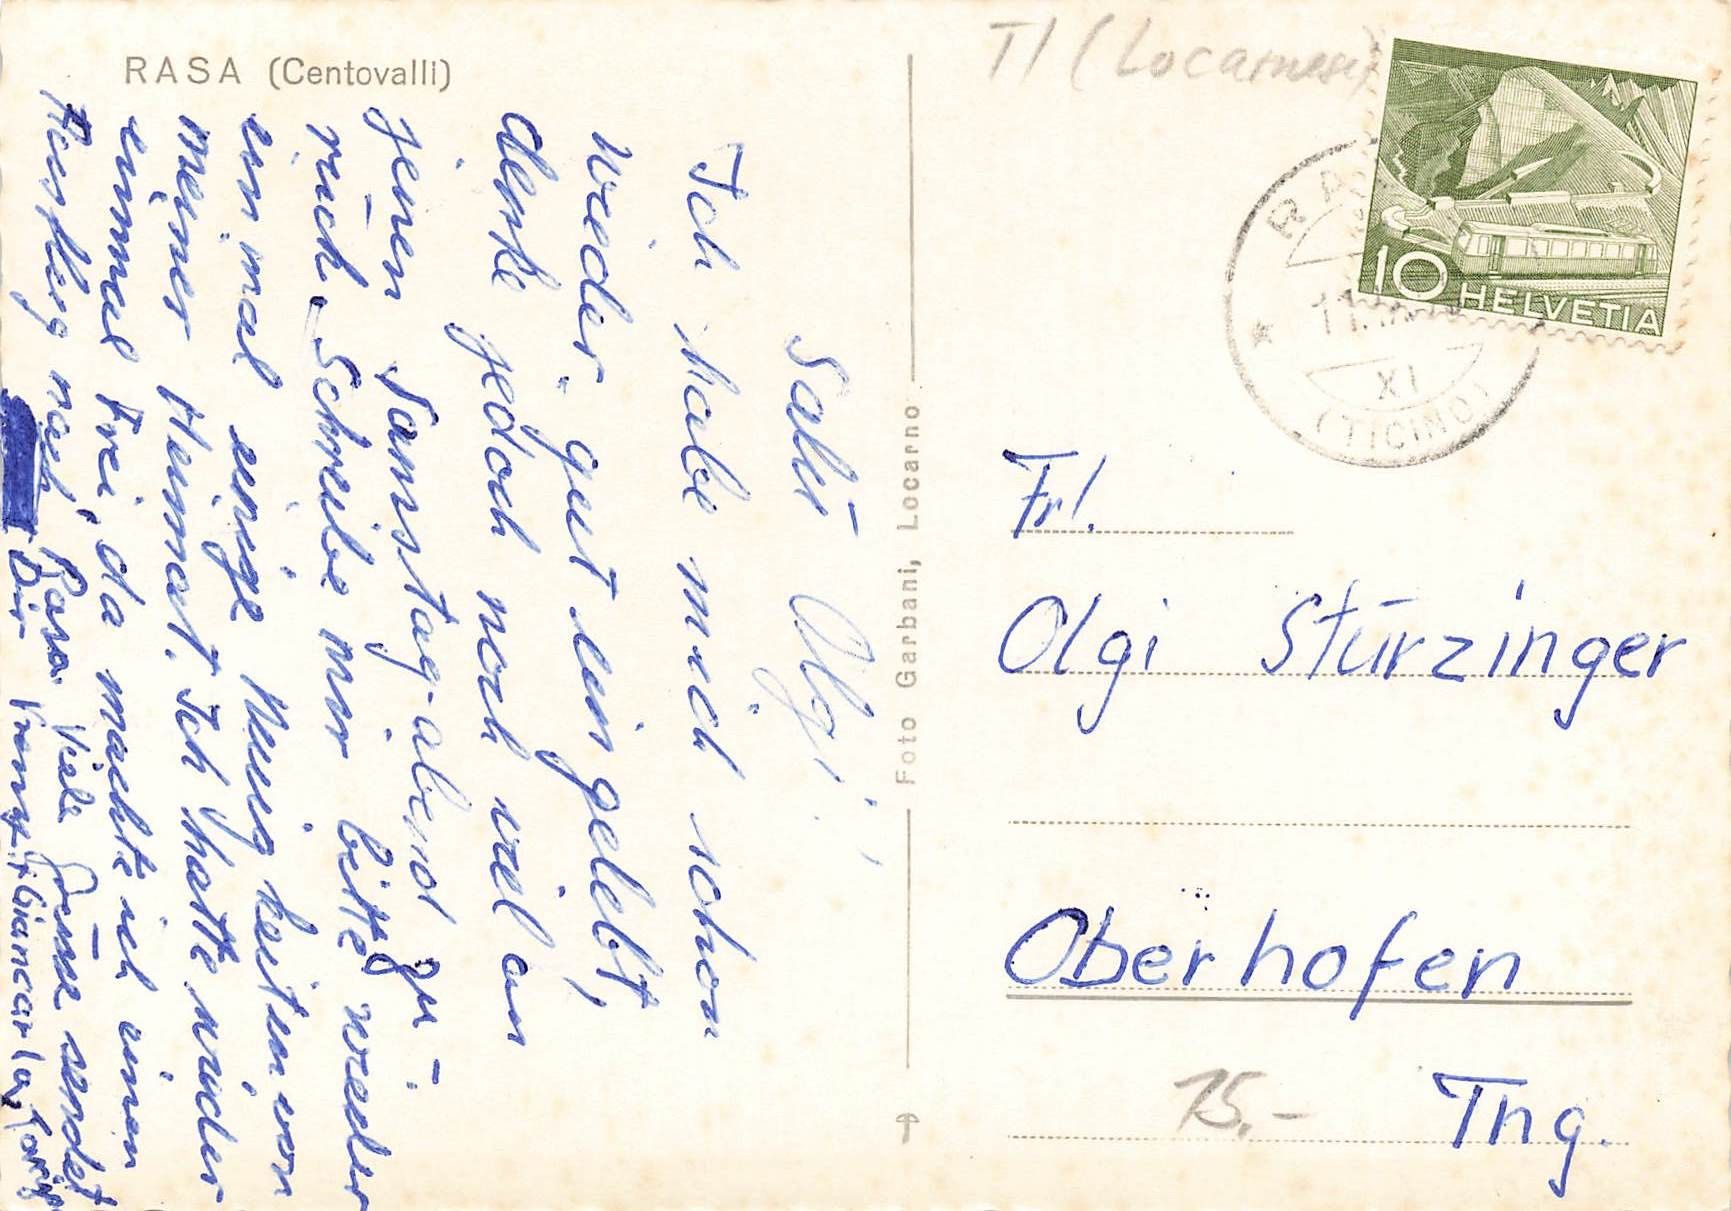 RASA (Centovalli)
Salü Olgi!
Ich habe mich schon
wieder gut eingelebt,
denke jedoch noch viel an
jenen Samstag-abend zu-
rück. Schreibe mir bitte wieder
ein mal einige Neuigkeiten von
meiner Heimat. Ich hatte wieder
einmal Frei, da machte ich einen
Ausflug nach Rasa. Viele Grüsse sendet
Dir
Foto Garbani, Locarno
TI (Locarnese)
10 HELVETIA
RA
11.
XI
(TICINO)
Frl.
Olgi Stürzinger
Oberhofen
Thg.
15.-